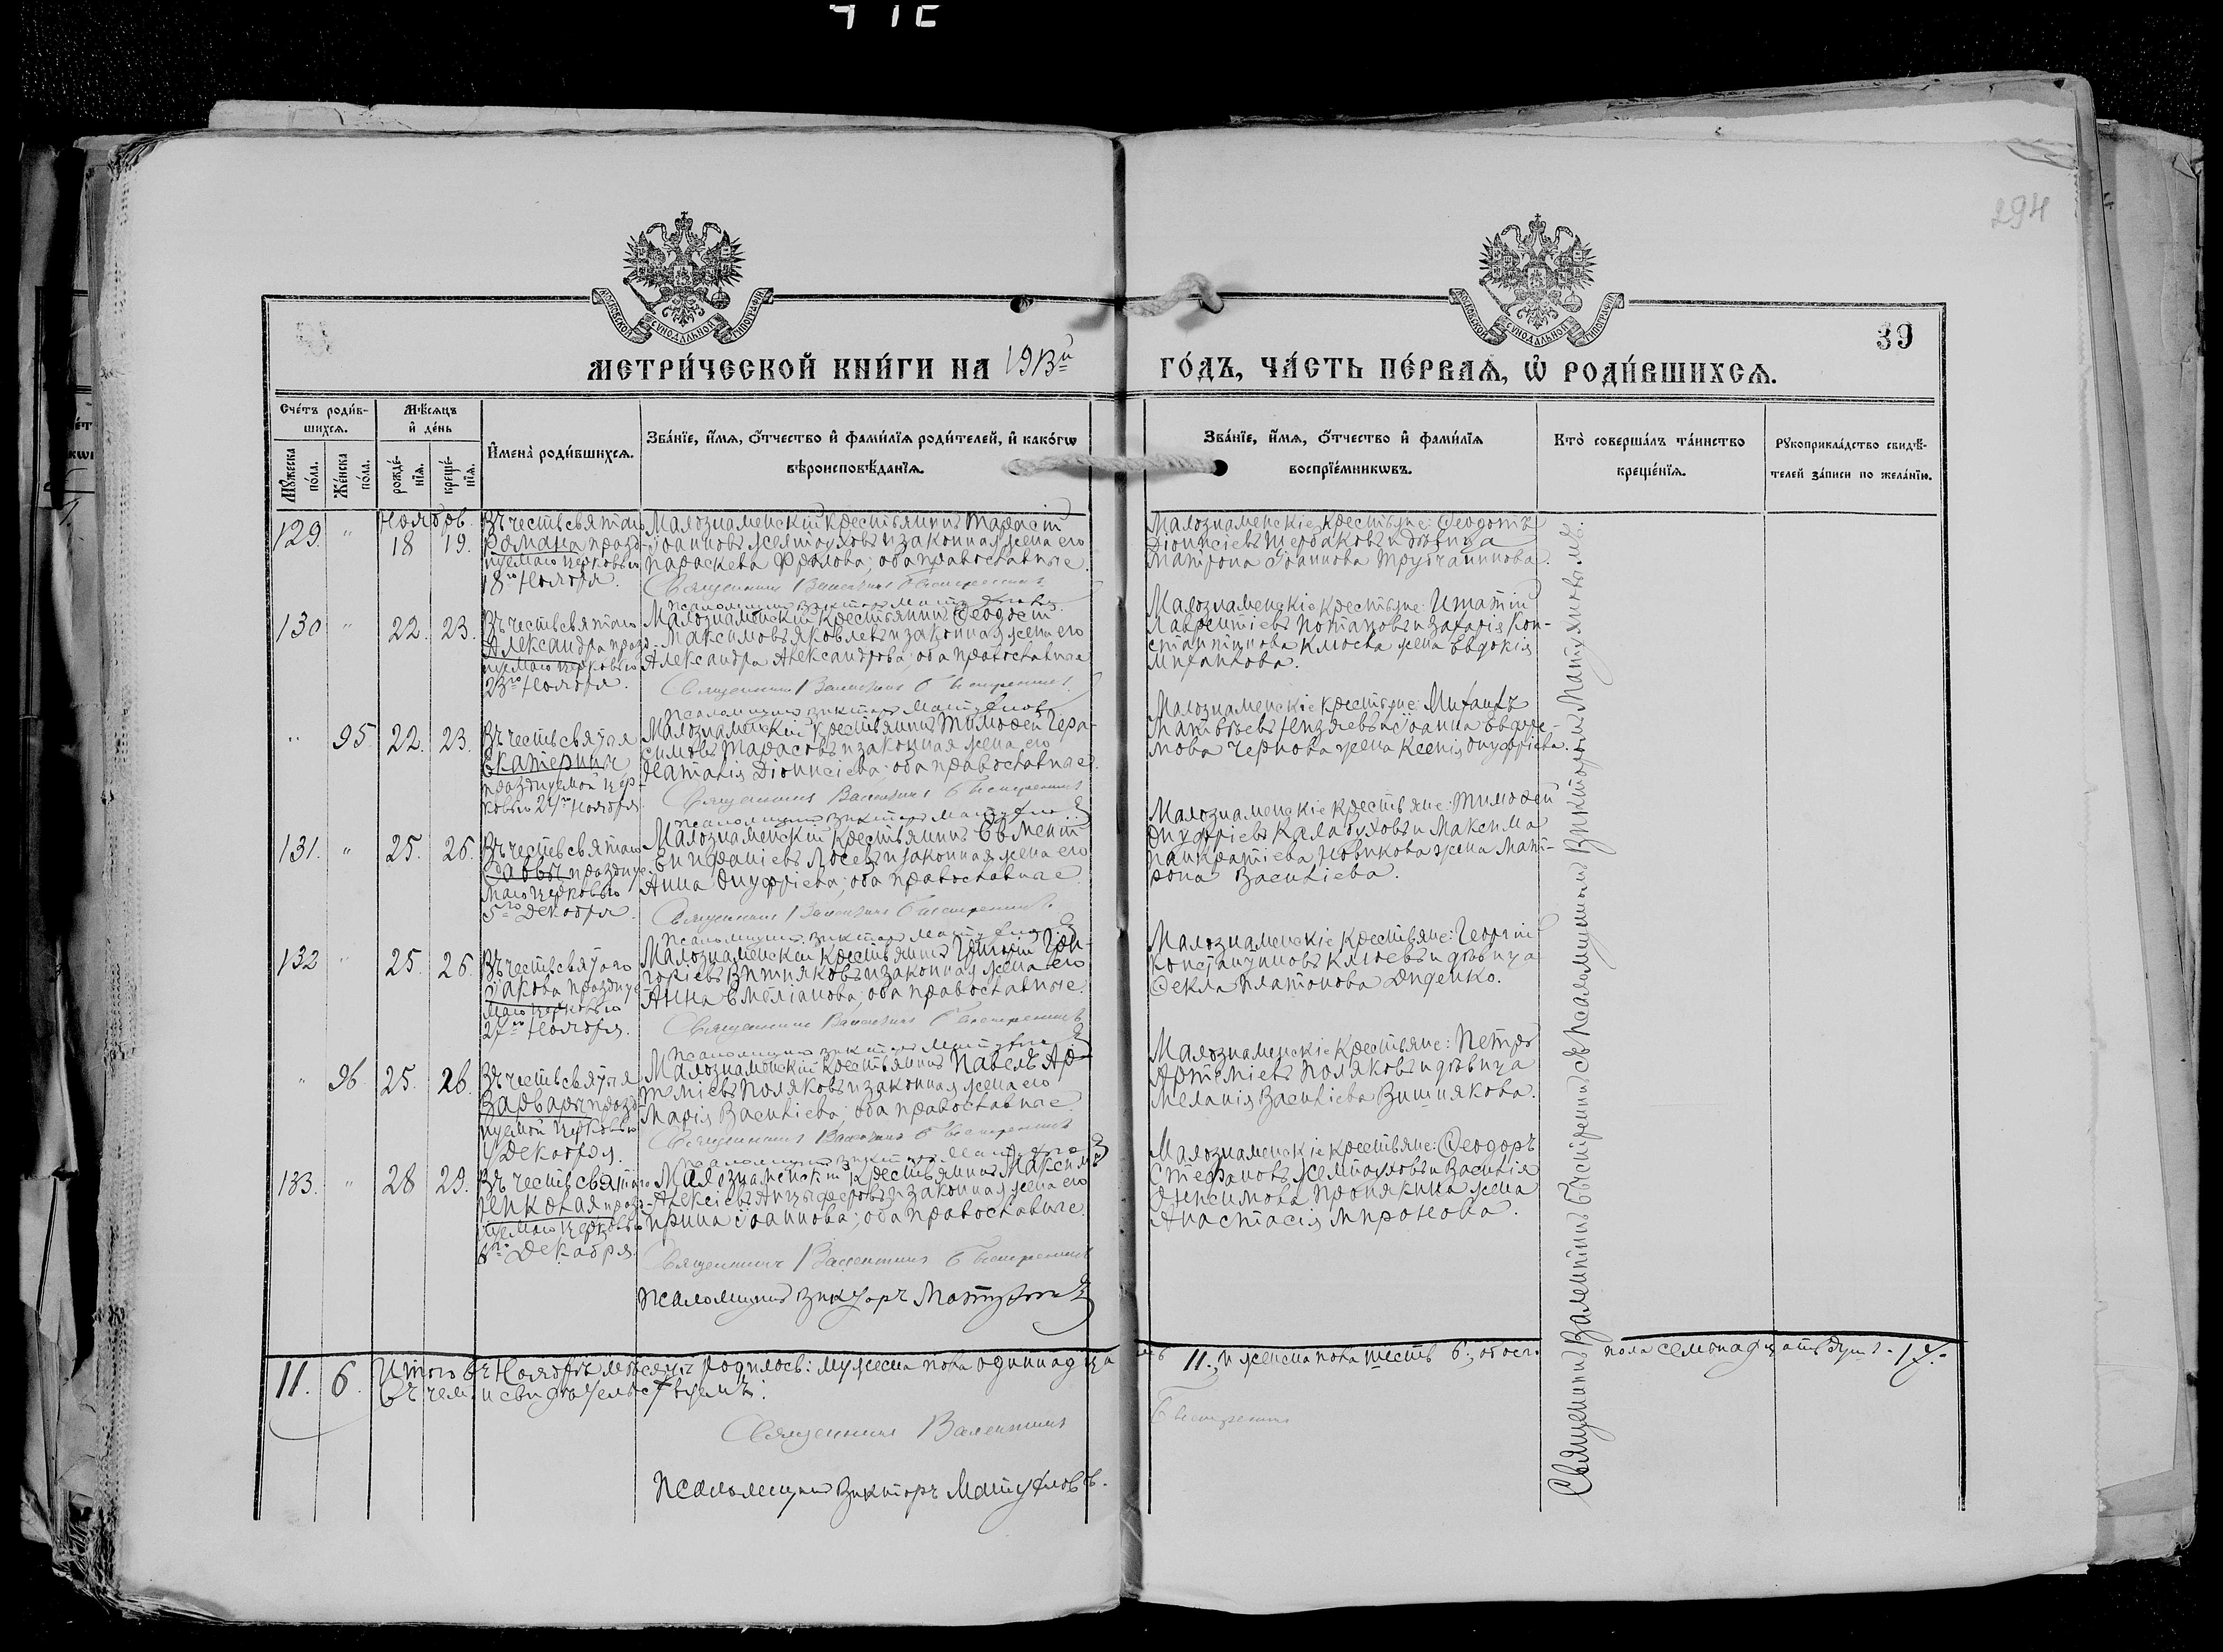 294
39
МОСКОВСКОЙ СѴНОДАЛЬНОЙ ТИПОГРАФІИ
МОСКОВСКОЙ СѴНОДАЛЬНОЙ ТИПОГРАФІИ
МЕТРИ́ЧЕСКОЙ КНИ́ГИ НА 1913й ГО́ДЪ, ЧА́СТЬ ПЕ́РВАѦ, Ѡ҆ РОДИ́ВШИХСѦ.
Сче́тъ роди́в-
шихсѧ.
Мꙋ́жеска по́ла.
Же́нска по́ла.
Мѣ́сѧцъ
и҆ де́нь
рожде́-нїѧ.
креще́-нїѧ.
И҆мена̀ роди́вшихсѧ.
Зва́нїе, и҆́мѧ, ѻ҆́тчество и҆ фами́лїѧ роди́телей, и҆ како́гѡ
вѣроисповѣ́данїѧ.
Зва́нїе, и҆́мѧ, ѻ҆́тчество и҆ фами́лїѧ
воспрїе́мникѡвъ.
Кто̀ соверша́лъ та́инство
креще́нїѧ.
Рꙋкоприкла́дство свидѣ́-
телей за́писи по жела́нїи.
Ноябрь
129. " 18 19.
Въ честь святого
Романа празд-
нуемаго церковью
18го Ноября.
Малознаменскій крестьянинъ Тарасій
Іоанновъ Желтоуховъ и законная жена его
Параскева Фролова; оба православные
Священникъ Валентинъ
Псаломщикъ Викторъ
Малознаменскіе крестьяне: Ѳеодотъ
Діонисіевъ Щербаковъ и дѣвица
Матрона Іоаннова Трубчанинова.
130 " 22. 23.
Въ честь святого
Александра празд-
нуемаго церковью
23го Ноября.
Малознаменскій крестьянинъ Ѳеодосій
Максимовъ Яковлевъ и законная жена его
Александра Александрова; оба православные
Священникъ Валентинъ
Псаломщикъ Викторъ
Малознаменскіе крестьяне: Игнатій
Лаврентіевъ Потаповъ и Захарія Кон-
стантинова Клюева жена Евдокія
Михайлова.
" 95. 22. 23.
Въ честь святыя
Екатерины
празднуемой цер-
ковью 24го Ноября
Малознаменскій крестьянинъ Тимоѳей Гера-
симовъ Тарасовъ и законная жена его
Наталія Діонисіева; оба православные.
Священникъ Валентинъ
Псаломщикъ Викторъ
Малознаменскіе крестьяне: Михаилъ
Матвѣевъ и Іоанна Ефре-
мова Чернова жена Ксенія Онуфріева.
131. " 25. 26.
Въ честь святого
Саввы празднуе-
маго церковью
5го Декабря.
Малознаменскій крестьянинъ
Епифаніевъ Лосевъ и законная жена его
Анна Онуфріева; оба православные
Священникъ Валентинъ
Псаломщикъ Викторъ
Малознаменскіе крестьяне: Тимоѳей
Онуфріевъ Калабуховъ и Максима
Панкратіева Новикова жена Мат-
рона Васильева.
132 " 25. 26.
Въ честь святого
Іакова празднуе-
маго церковью
27го Ноября.
Малознаменскій крестьянинъ Игнатій Гри-
горіевъ Витняковъ и законная жена его
Анна Емеліанова; оба православные.
Священникъ Валентинъ
Псаломщикъ Викторъ
Малознаменскіе крестьяне: Георгій
Константиновъ Клюевъ и дѣвица
Ѳекла Платонова Диденко.
" 96. 25. 26.
Въ честь святыя
Варвары празд-
нуемой церковью
4 Декабря.
Малознаменскій крестьянинъ Павелъ Ар-
теміевъ Поляковъ и законная жена его
Марія Васильева; оба православные.
Священникъ Валентинъ
Псаломщикъ Викторъ
Малознаменскіе крестьяне: Петръ
Артеміевъ Поляковъ и дѣвица
Меланія Васильева Вишнякова.
133. " 28 29.
Въ честь святого
Николая празд-
нуемаго церковью
6го Декабря.
Малознаменскій крестьянинъ Максимъ
Алексіевъ Анцыферовъ и законная жена его
Ирина Іоаннова; оба православные.
Священникъ Валентинъ
Псаломщикъ Викторъ
Малознаменскіе крестьяне: Ѳеодоръ
Стефановъ Желтоуховъ и Василія
Анисимова Пронякина жена
Анастасія Миронова.
Священникъ Валентинъ съ псаломщикомъ Викторомъ
11. 6. Итого въ Ноябрѣ мѣсяцѣ родилось: мужеска пола одиннадца
ть 11., и женска пола шесть 6., обоего пола семнадцать душъ - 17.-
въ чемъ и свидѣтельствуемъ:
Священникъ Валентинъ
Псаломщикъ Викторъ